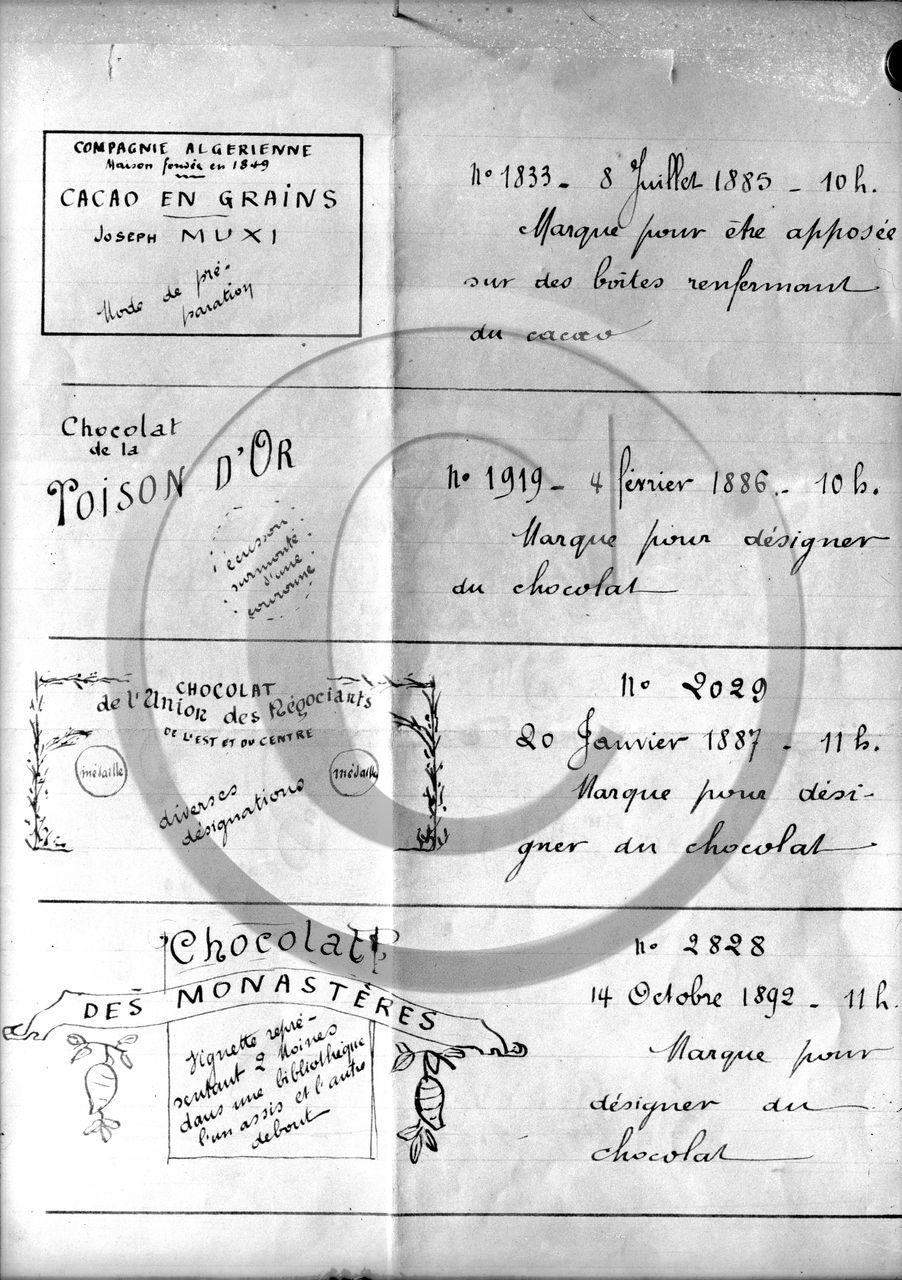 COMPAGNIE ALGERIENNE
Maison fondée en 1849
CACAO EN GRAINS
JOSEPH MUXI
Mode de pré-
paration
n° 1833 - 8 Juillet 1885 - 10 h.
Marque pour être apposée
sur des boîtes renfermant
du cacao
Chocolat
de la
TOISON D'OR
écusson
surmonté
d'une
couronne
n° 1919 - 4 février 1886 - 10 h.
Marque pour désigner
du chocolat
CHOCOLAT
de l'Union des Négociants
DE L'EST ET DU CENTRE
médaille
médaille
diverses
désignations
n° 2029
20 Janvier 1887 - 11 h.
Marque pour dési-
gner du chocolat
Chocolat
DES MONASTÈRES
Vignette repré-
sentant 2 Moines
dans une bibliothèque
l'un assis et l'autre
debout
n° 2828
14 Octobre 1892 - 11 h.
Marque pour
désigner du
chocolat